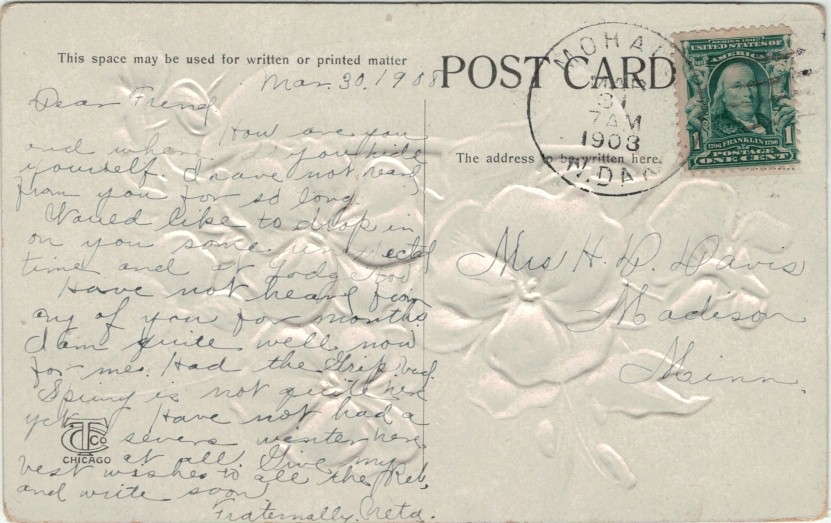 This space may be used for written or printed matter
POST CARD
The address to be written here.
MOHALL
MAR
31
7AM
1908
N. DAK.
SERIES 1902
UNITED STATES OF
AMERICA
1706 FRANKLIN 1790
1 1
POSTAGE
ONE CENT
Mar. 30, 1908
Dear Friend
How are you
and where do you hide
yourself. I have not heard
from you for so long
Would like to drop in
on you some unexpected
time and at lodge too
Have not heard from
any of you for months
I am quite well now
for me. Had the Grip bad
Spring is not quite here
yet. Have not had a
severe winter here
at all. Give my
best wishes to all the Reb.
and write soon
Fraternally,
Mrs H. D. Davis
Madison
Minn.
TC Co
CHICAGO